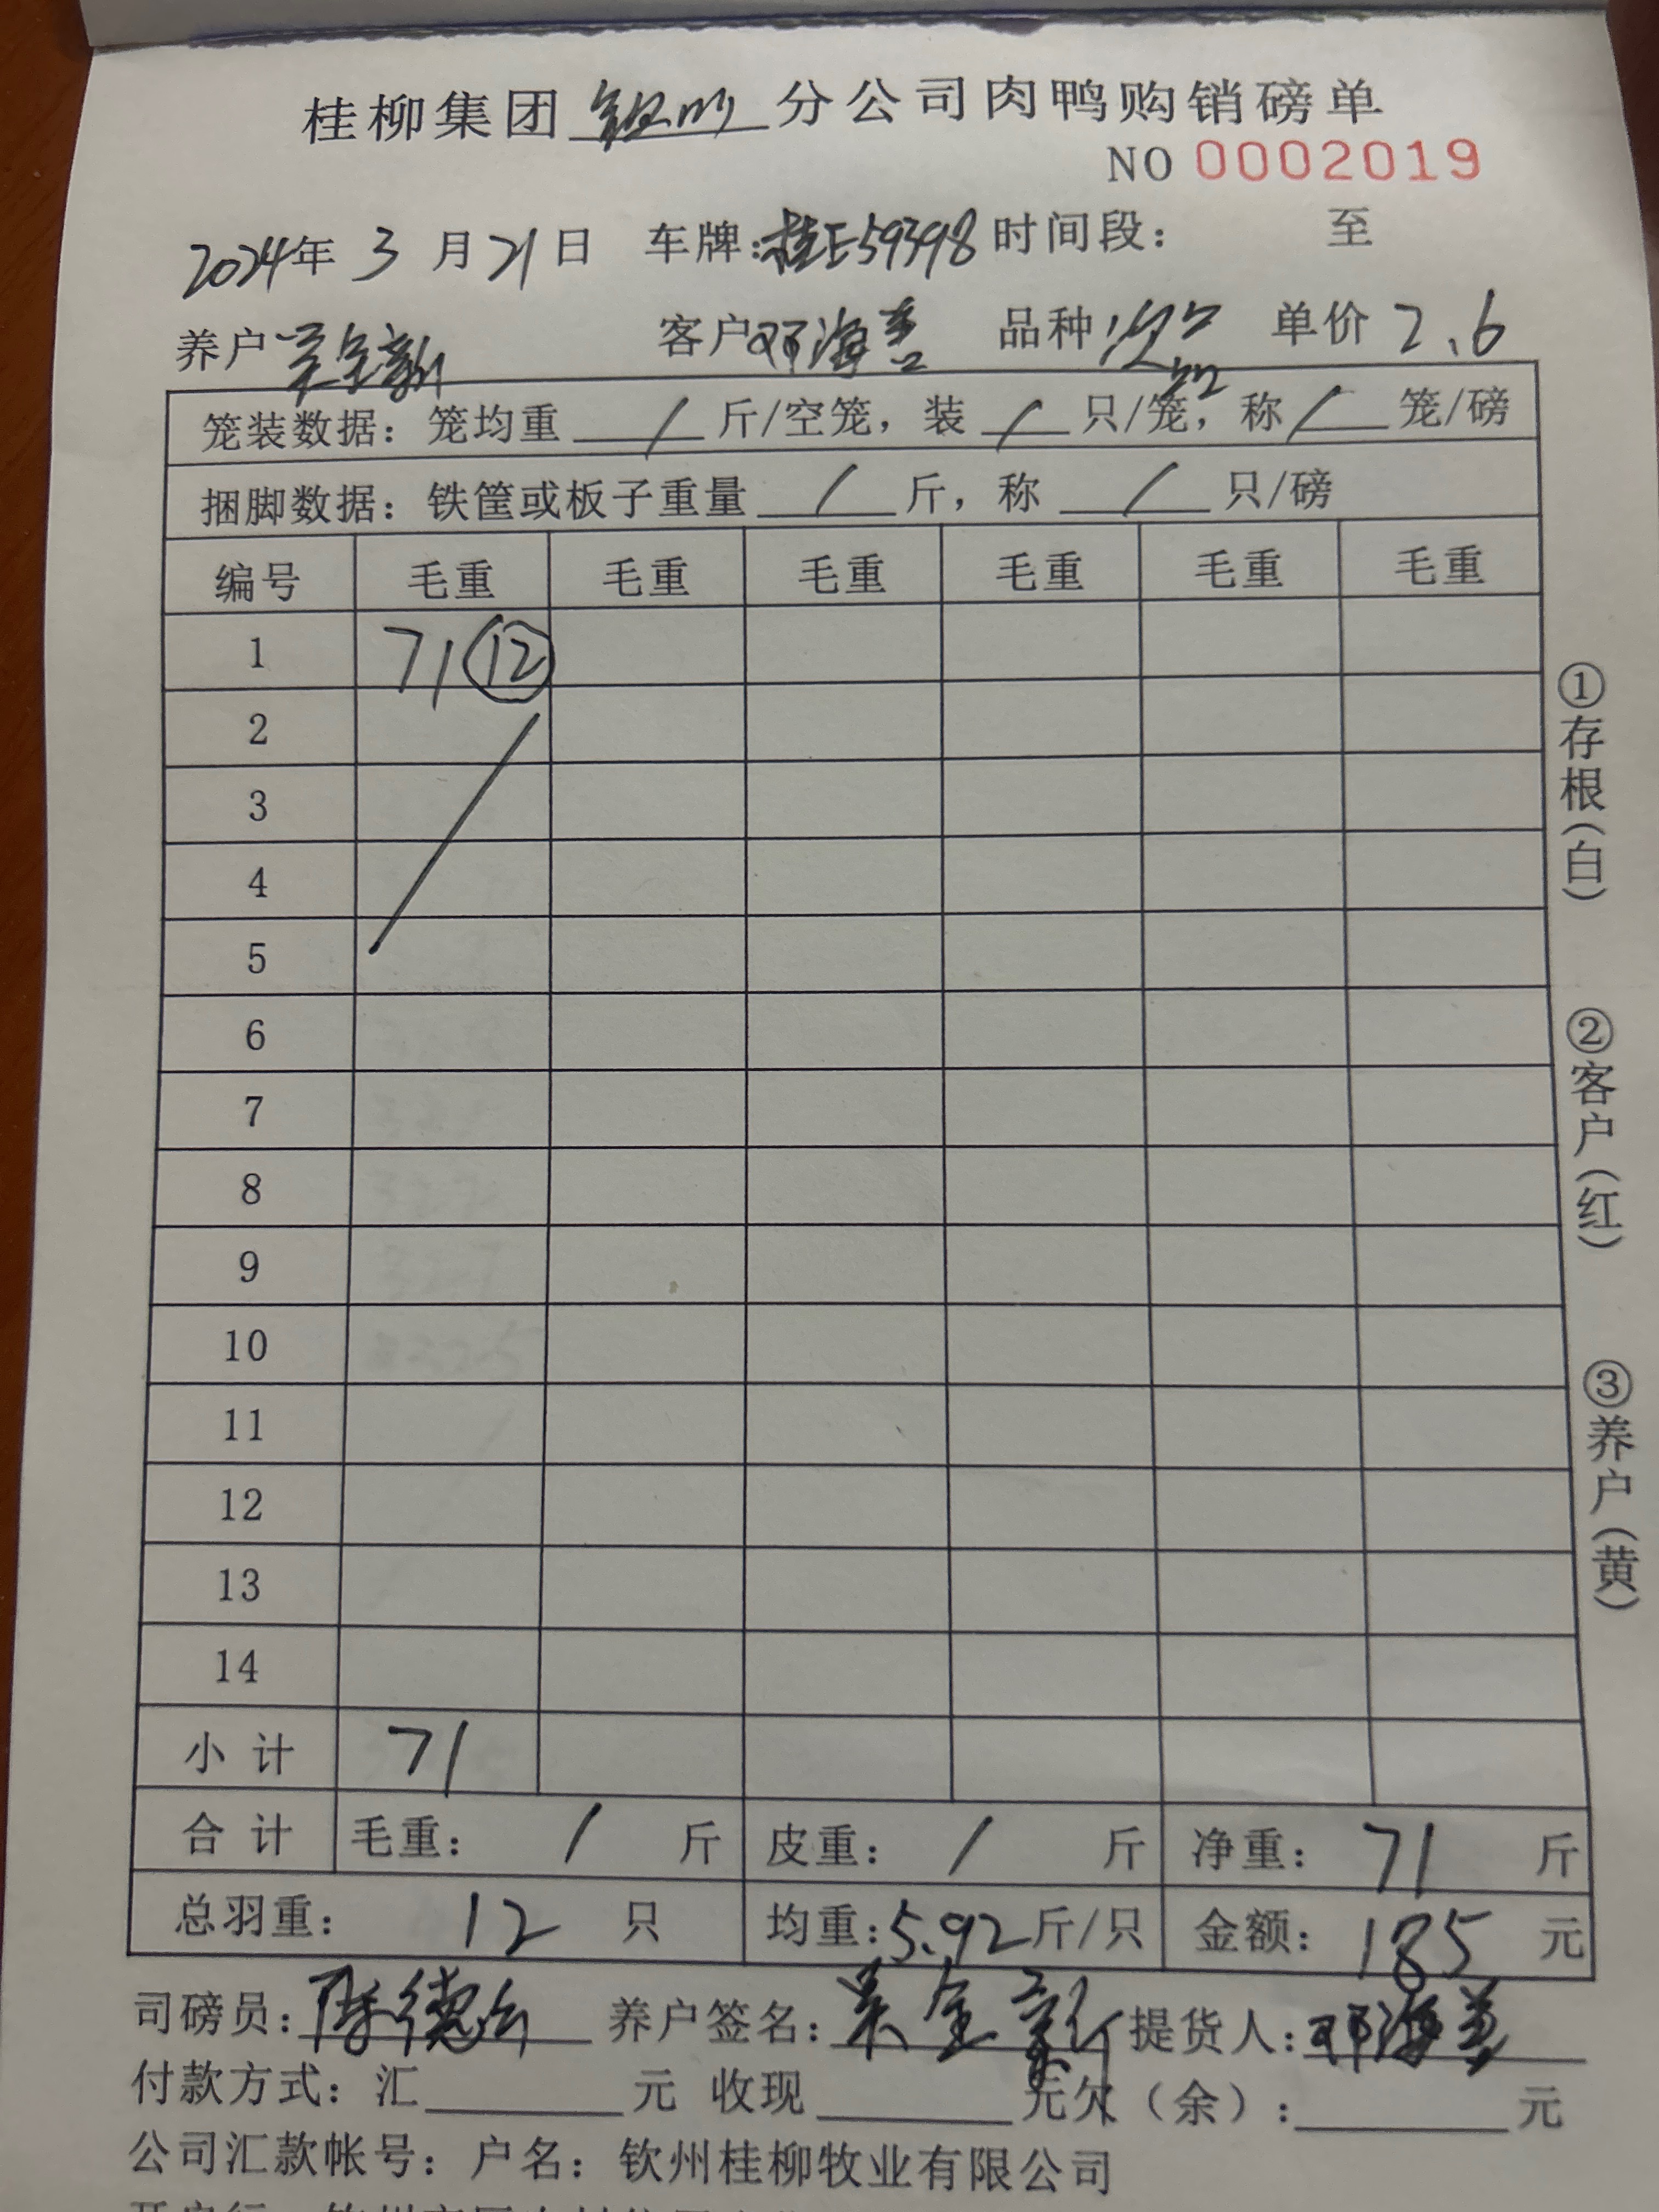 桂柳集团钦州分公司肉鸭购销磅单
NO 0002019
2024年 3 月 21 日 车牌:桂E59398 时间段: 至
养户 客户邓海善 品种 次品 单价 2.6
笼装数据: 笼均重 / 斤/空笼, 装 / 只/笼, 称 / 笼/磅
捆脚数据: 铁筐或板子重量 / 斤, 称 / 只/磅
编号 毛重 毛重 毛重 毛重 毛重 毛重
1 71 ⑫
2
3
4
5
6
7
8
9
10
11
12
13
14
小计 71
合计 毛重: / 斤 皮重: / 斤 净重: 71 斤
总羽重: 12 只 均重:5.92斤/只 金额: 185 元
司磅员:陈德 养户签名: 提货人:邓海善
付款方式: 汇 元 收现 元欠(余): 元
公司汇款帐号: 户名: 钦州桂柳牧业有限公司
①存根(白)
②客户(红)
③养户(黄)